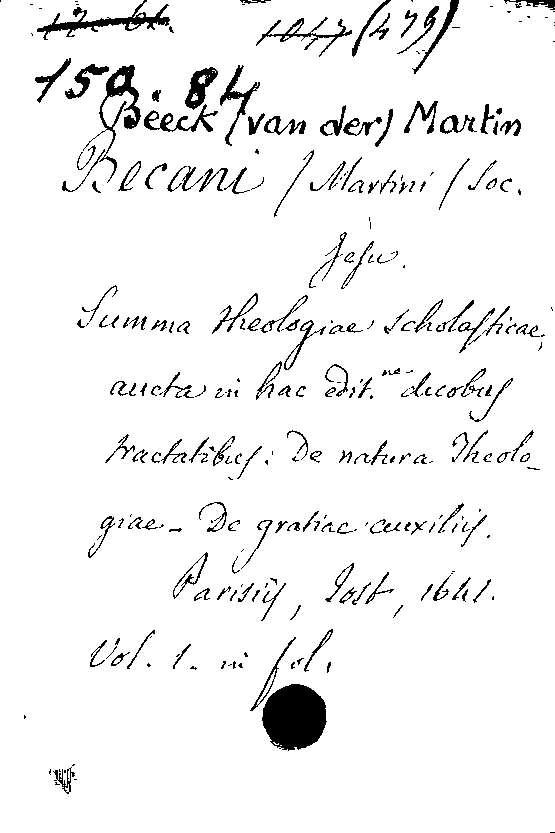 17. 61. 1047 (479)
150. 84
Beeck (van der) Martin
Becani / Martini / Soc.
Jesu.
Summa theologiae scholasticae,
aucta in hac edit.ne duobus
tractatibus: De natura Theolo-
giae - De gratiae auxiliis.
Parisiis, Jost, 1641.
Vol. 1. in fol.